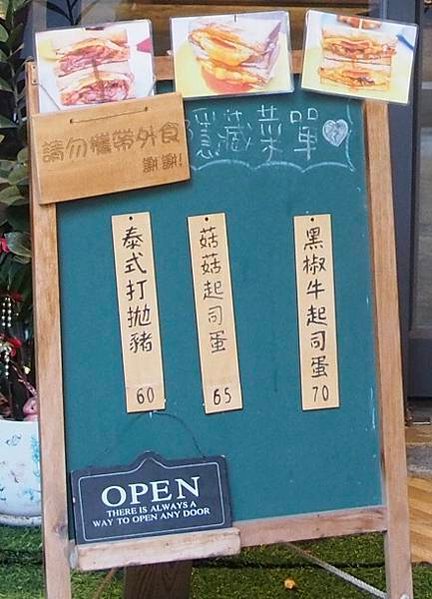 請勿攜帶外食
謝謝!
隱藏菜單
泰式打拋豬
60
菇菇起司蛋
65
黑椒牛起司蛋
70
OPEN
THERE IS ALWAYS A
WAY TO OPEN ANY DOOR